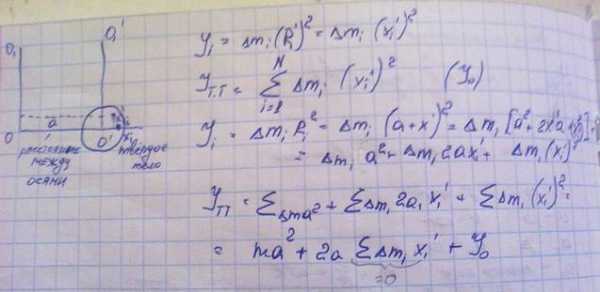 O₁ O₁'
a
O O' x₁
расстояние
между
осями
твердое
тело
J_i = Δm_i (R_i')² = Δm_i (x_i')²
J_Т.Т. = Σ_{i=1}^{N} Δm_i (x_i')² (J₀)
J_i = Δm_i R_i² = Δm_i (a+x_i')² = Δm_i [a² + 2x_i'a +
= Δm_i a² + Δm_i 2ax_i' + Δm_i (x_i')²
J_ТТ = ΣΔma² + ΣΔm_i 2a x_i' + ΣΔm_i (x_i')² =
= ma² + 2a ΣΔm_i x_i' + J₀
=0